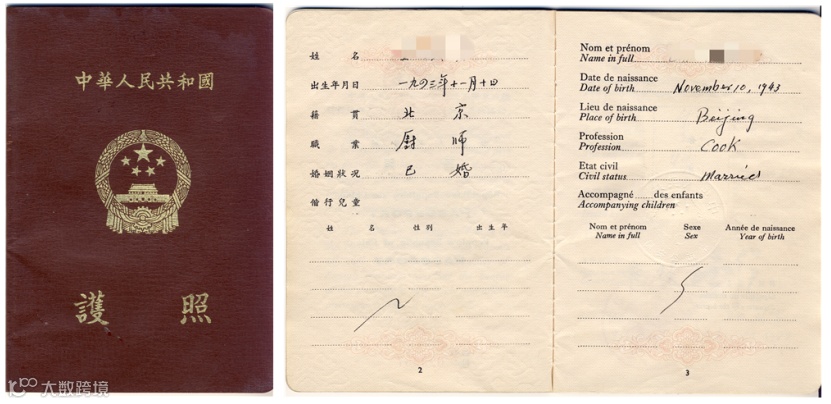 中華人民共和國
護 照
大数跨境
姓 名
出生年月日 一九四三年十一月十日
籍 貫 北 京
職 業 廚 師
婚姻狀況 已 婚
偕行兒童
姓 名 性別 出生年
2
Nom et prénom
Name in full
Date de naissance
Date of birth November 10, 1943
Lieu de naissance
Place of birth Beijing
Profession
Profession Cook
Etat civil
Civil status Married
Accompagné ...... des enfants
Accompanying children
Nom et prénom Sexe Année de naissance
Name in full Sex Year of birth
3